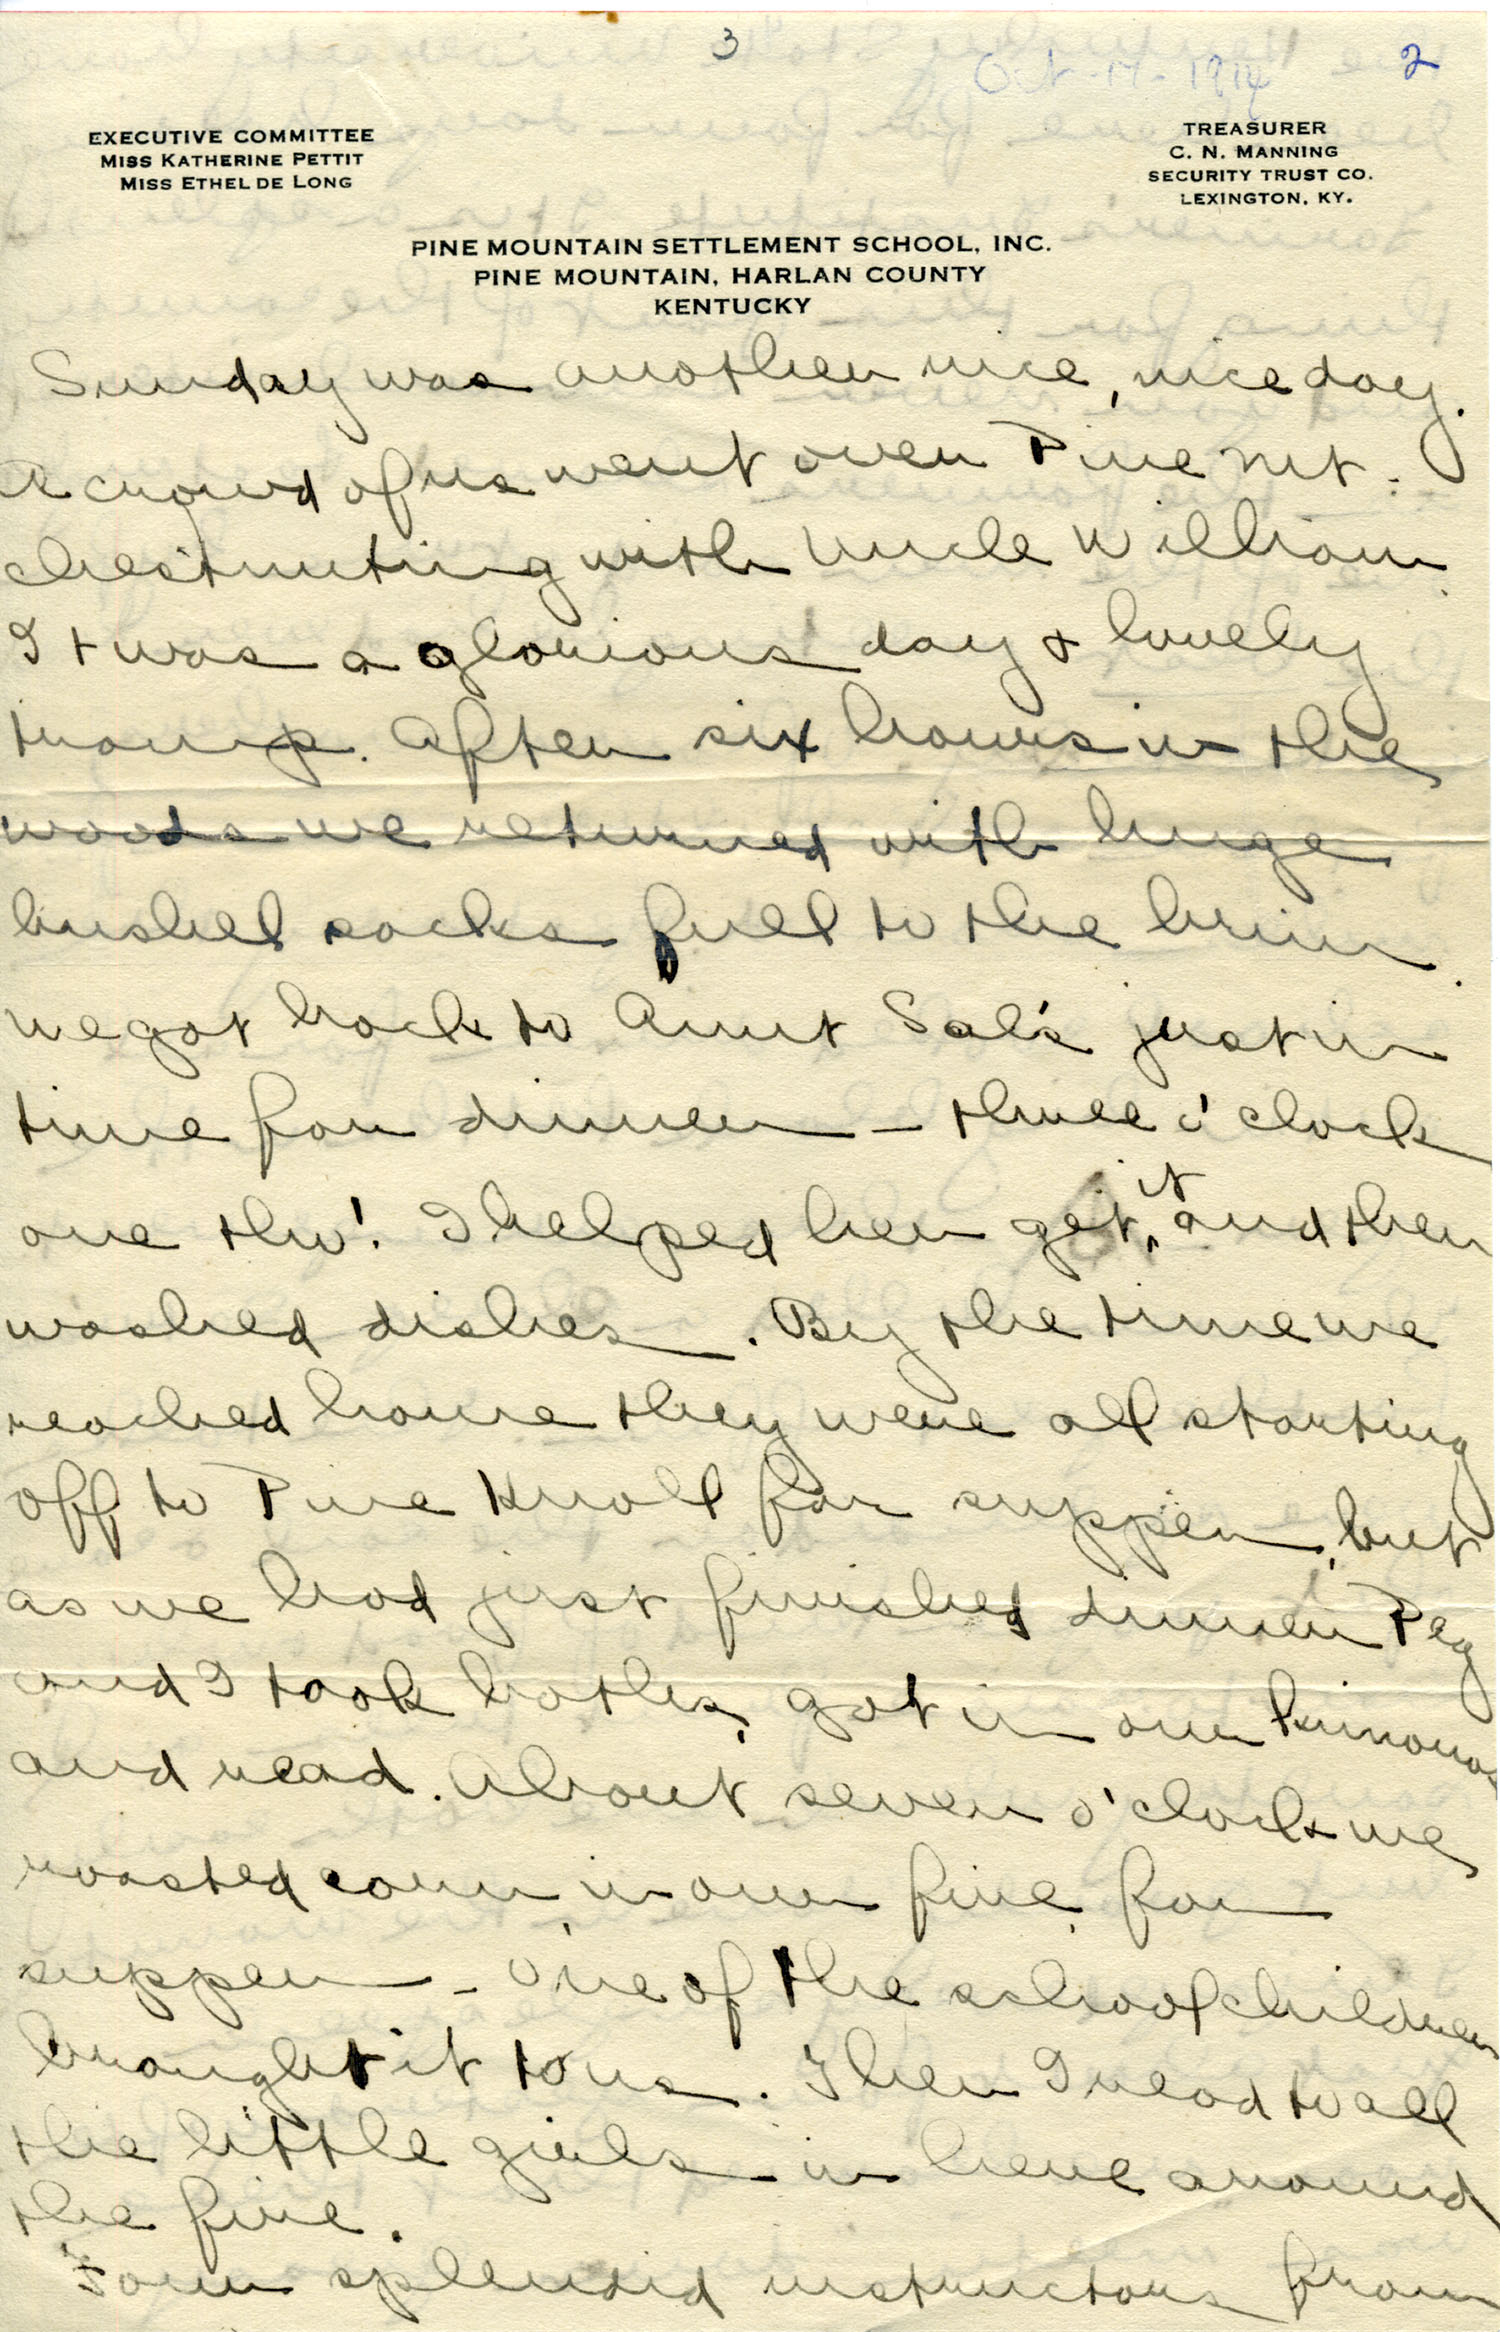 3
Oct - 17 - 1914
2
EXECUTIVE COMMITTEE
MISS KATHERINE PETTIT
MISS ETHEL DE LONG
TREASURER
C. N. MANNING
SECURITY TRUST CO.
LEXINGTON, KY.
PINE MOUNTAIN SETTLEMENT SCHOOL, INC.
PINE MOUNTAIN, HARLAN COUNTY
KENTUCKY
Sunday was another nice, nice day.
A crowd of us went over Pine Mt.
chestnutting with Uncle William.
It was a glorious day & lovely
tramp. After six hours in the
woods we returned with huge
bushel sacks full to the brim.
We got back to Aunt Sal's just in
time for dinner - three o'clock
one tho'. I helped her get it, and then
washed dishes. By the time we
reached home they were all starting
off to Pine Knoll for supper, but
as we had just finished dinner Peg
and I took baths, got in our kimonas
and read. About seven o'clock we
roasted corn, in our fire, for
supper - one of the school children
brought it to us. Then I read to all
the little girls - in here around
the fire.
Four splendid instructors from